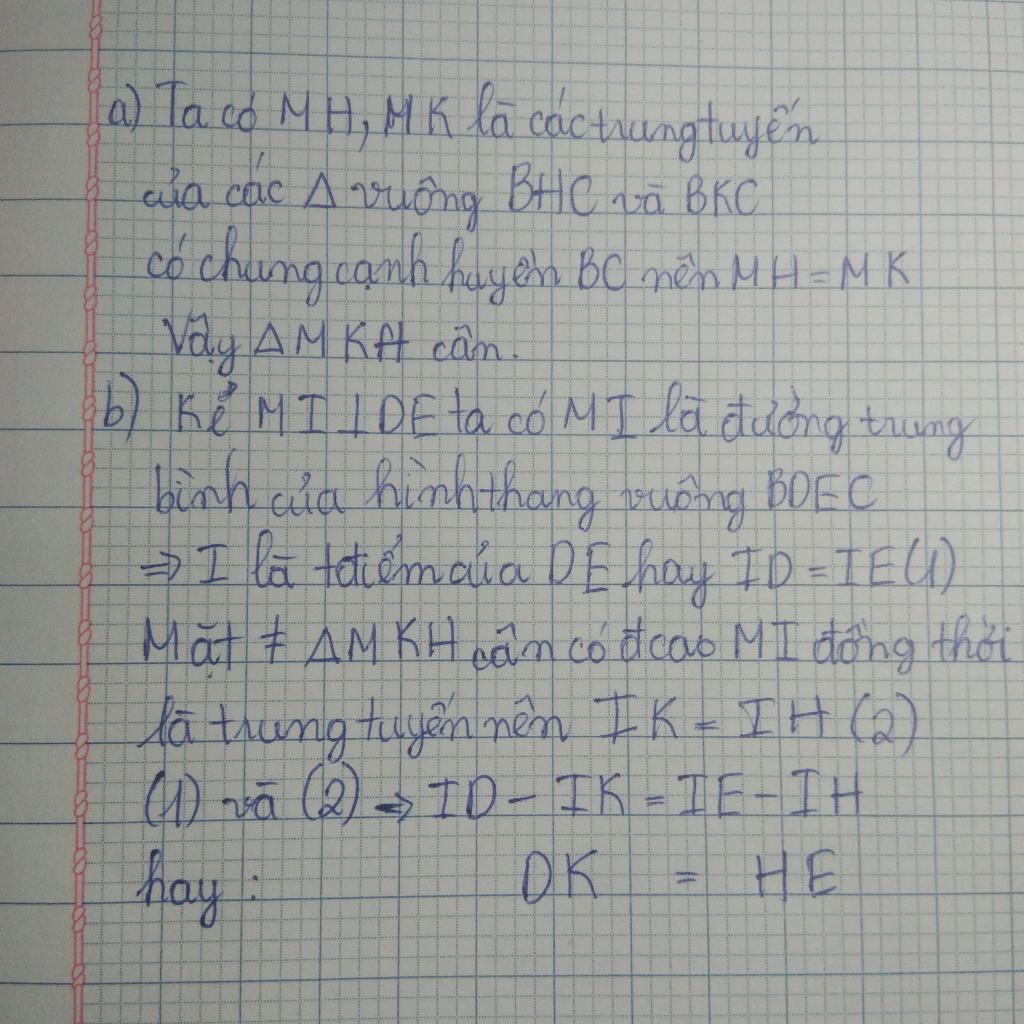 a) Ta có MH, MK là các trung tuyến
của các Δ vuông BHC và BKC
có chung cạnh huyền BC nên MH = MK
Vậy ΔMKH cân.
b) Kẻ MI ⊥ DE ta có MI là đường trung
bình của hình thang vuông BDEC
⇒ I là tđiểm của DE hay ID = IE (1)
Mặt ≠ ΔMKH cân có đcao MI đồng thời
là trung tuyến nên IK = IH (2)
(1) và (2) ⇒ ID - IK = IE - IH
hay : DK = HE